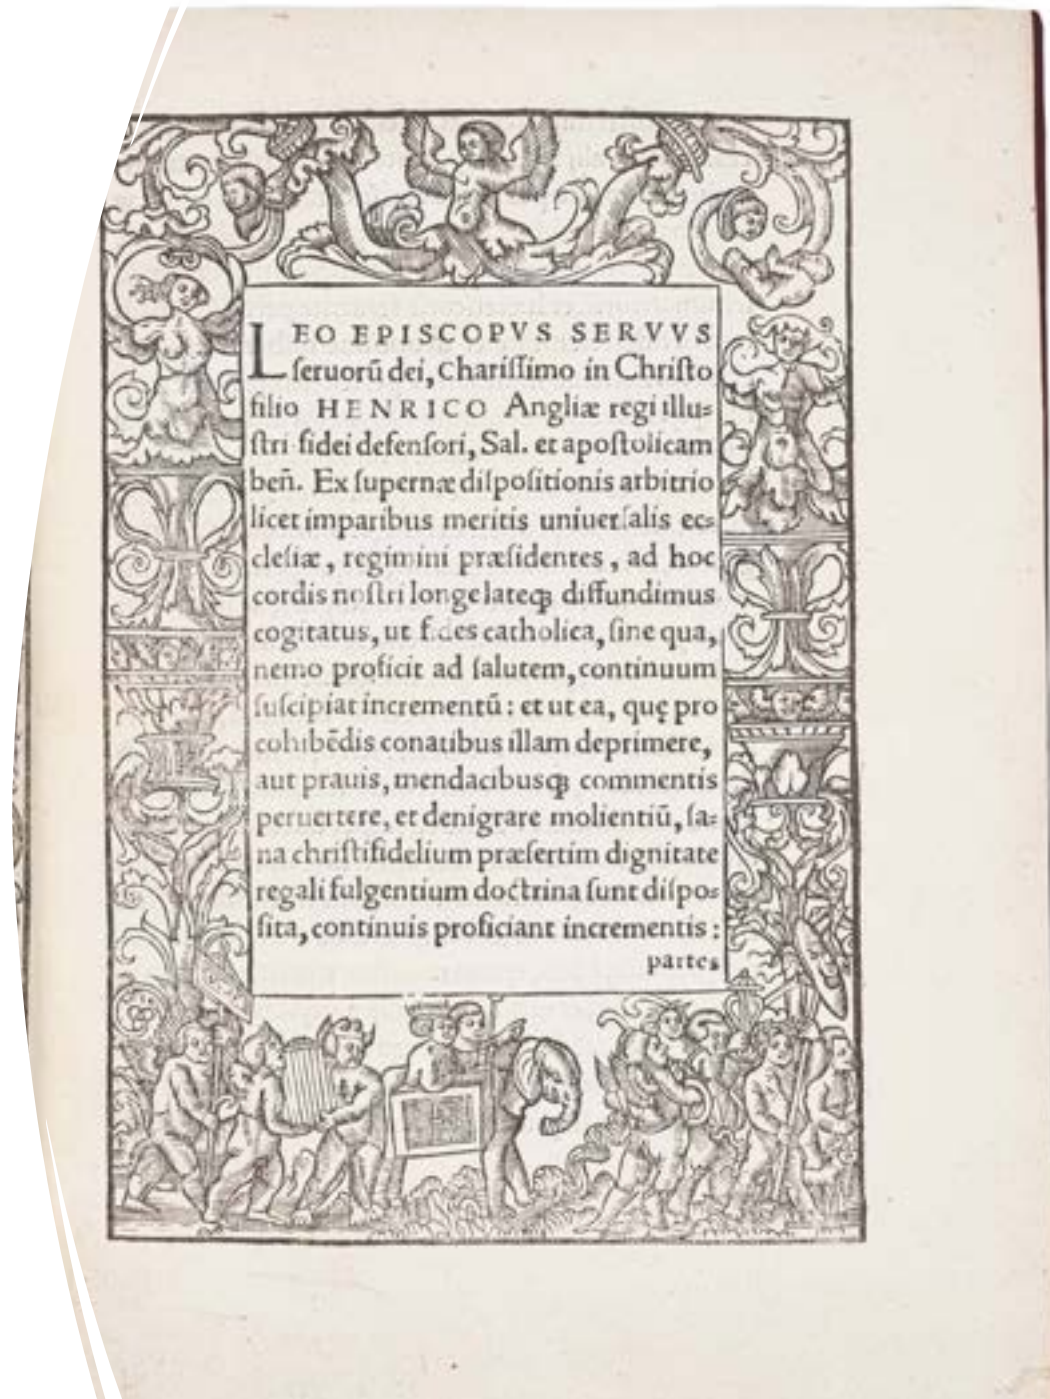 LEO EPISCOPVS SERVVS
ſeruorū dei, Chariſſimo in Chriſto
filio HENRICO Angliæ regi illu⸗
ſtri fidei defenſori, Sal. et apoſtolicam
ben̄. Ex ſupernæ diſpoſitionis arbitrio
licet imparibus meritis uniuerſalis ec⸗
cleſiæ, regimini præſidentes, ad hoc
cordis noſtri longe lateꝗ diffundimus
cogitatus, ut fides catholica, ſine qua,
nemo proficit ad ſalutem, continuum
ſuſcipiat incrementū: et ut ea, quę pro
cohibēdis conatibus illam deprimere,
aut prauis, mendacibusꝗ commentis
peruertere, et denigrare molientiū, ſa⸗
na chriſtifidelium præſertim dignitate
regali fulgentium doctrina ſunt diſpo⸗
ſita, continuis proficiant incrementis:
partes